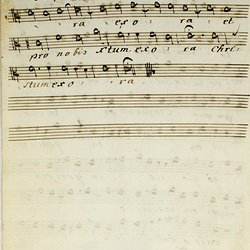 ra exo ra et
pro nobis xtum exo ra Chri
stum exo ra.